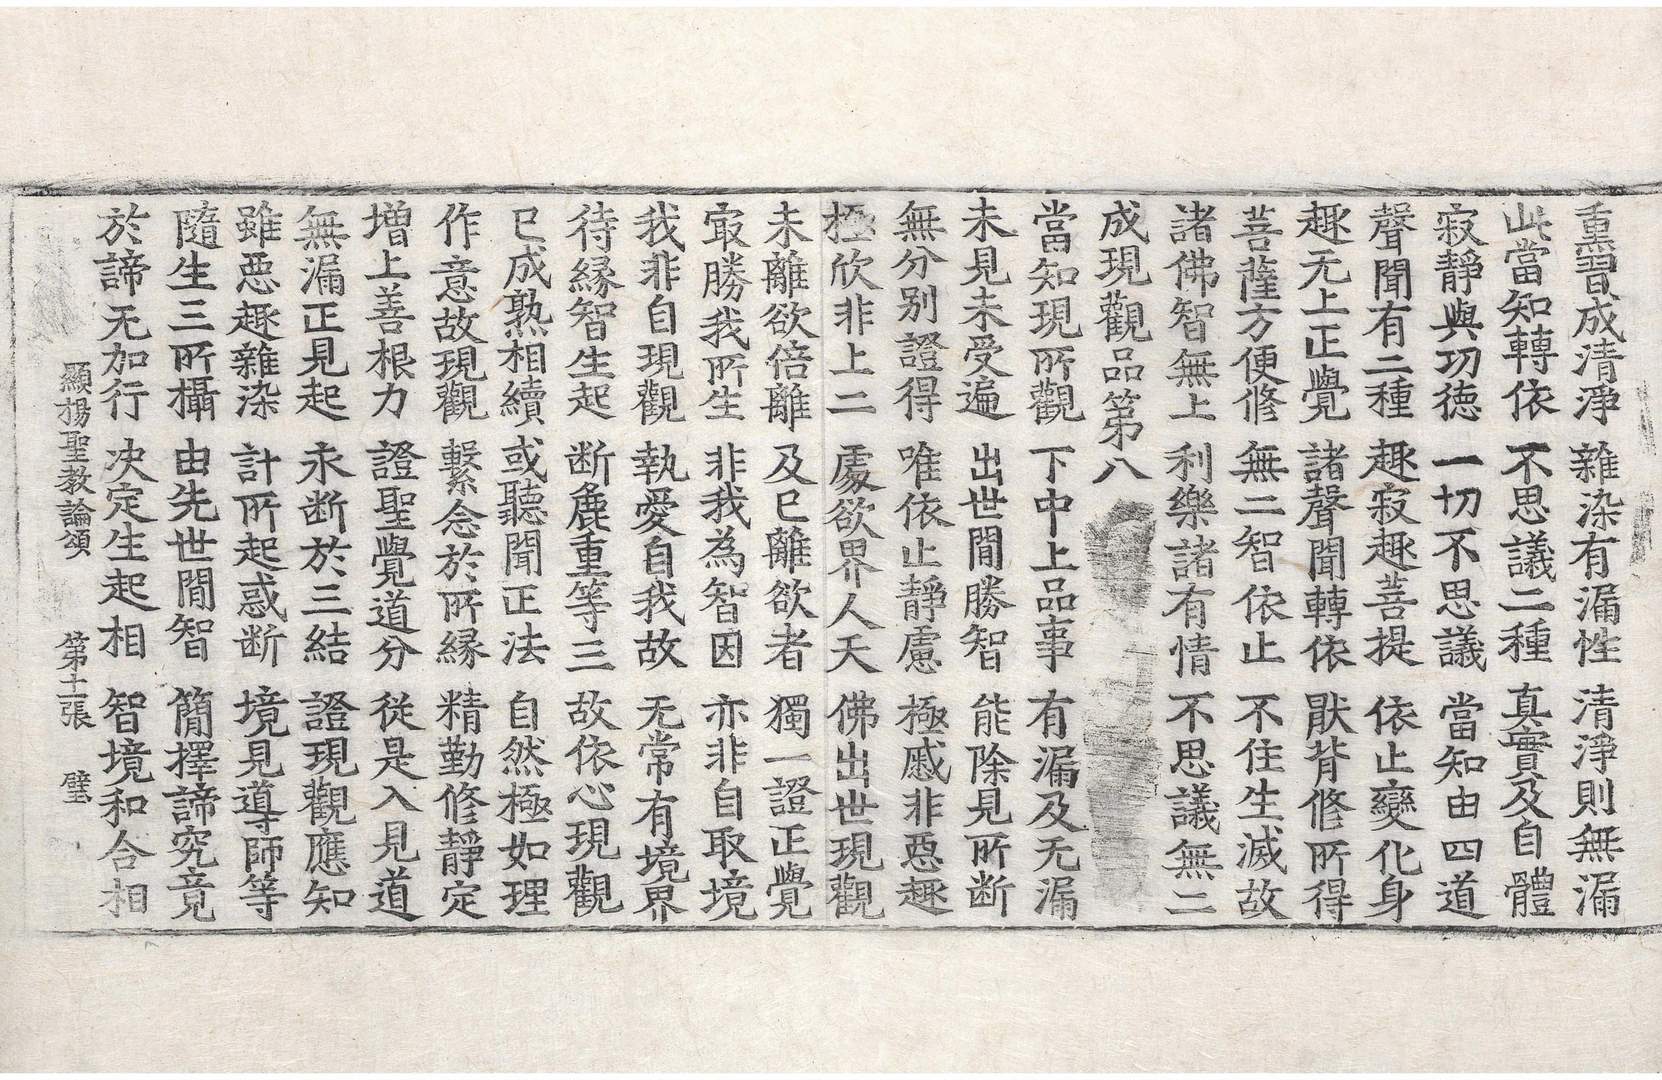 熏習成清淨 雜染有漏性 清淨則無漏
此當知轉依 不思議二種 真實及自體
寂靜與功徳 一切不思議 當知由四道
聲聞有二種 趣寂趣菩提 依止變化身
趣无上正覺 諸聲聞轉依 猒背修所得
菩薩方便修 無二智依止 不住生滅故
諸佛智無上 利樂諸有情 不思議無二
成現觀品第八
當知現所觀 下中上品事 有漏及无漏
未見未受遍 出世間勝智 能除見所断
無分别證得 唯依止靜慮 極慼非惡趣
極欣非上二 處欲界人天 佛出世現觀
未離欲倍離 及已離欲者 獨一證正覺
冣勝我所生 非我為智因 亦非自取境
我非自現觀 執愛自我故 无常有境界
待縁智生起 断麁重等三 故依心現觀
已成熟相續 或聽聞正法 自然極如理
作意故現觀 繫念於所縁 精勤修靜定
增上善根力 證聖覺道分 從是入見道
無漏正見起 永断於三結 證現觀應知
雖惡趣雜染 計所起惑断 境見導師等
隨生三所攝 由先世間智 簡擇諦究竟
於諦无加行 决定生起相 智境和合相
顯揚聖教論頌 第十二張 璧